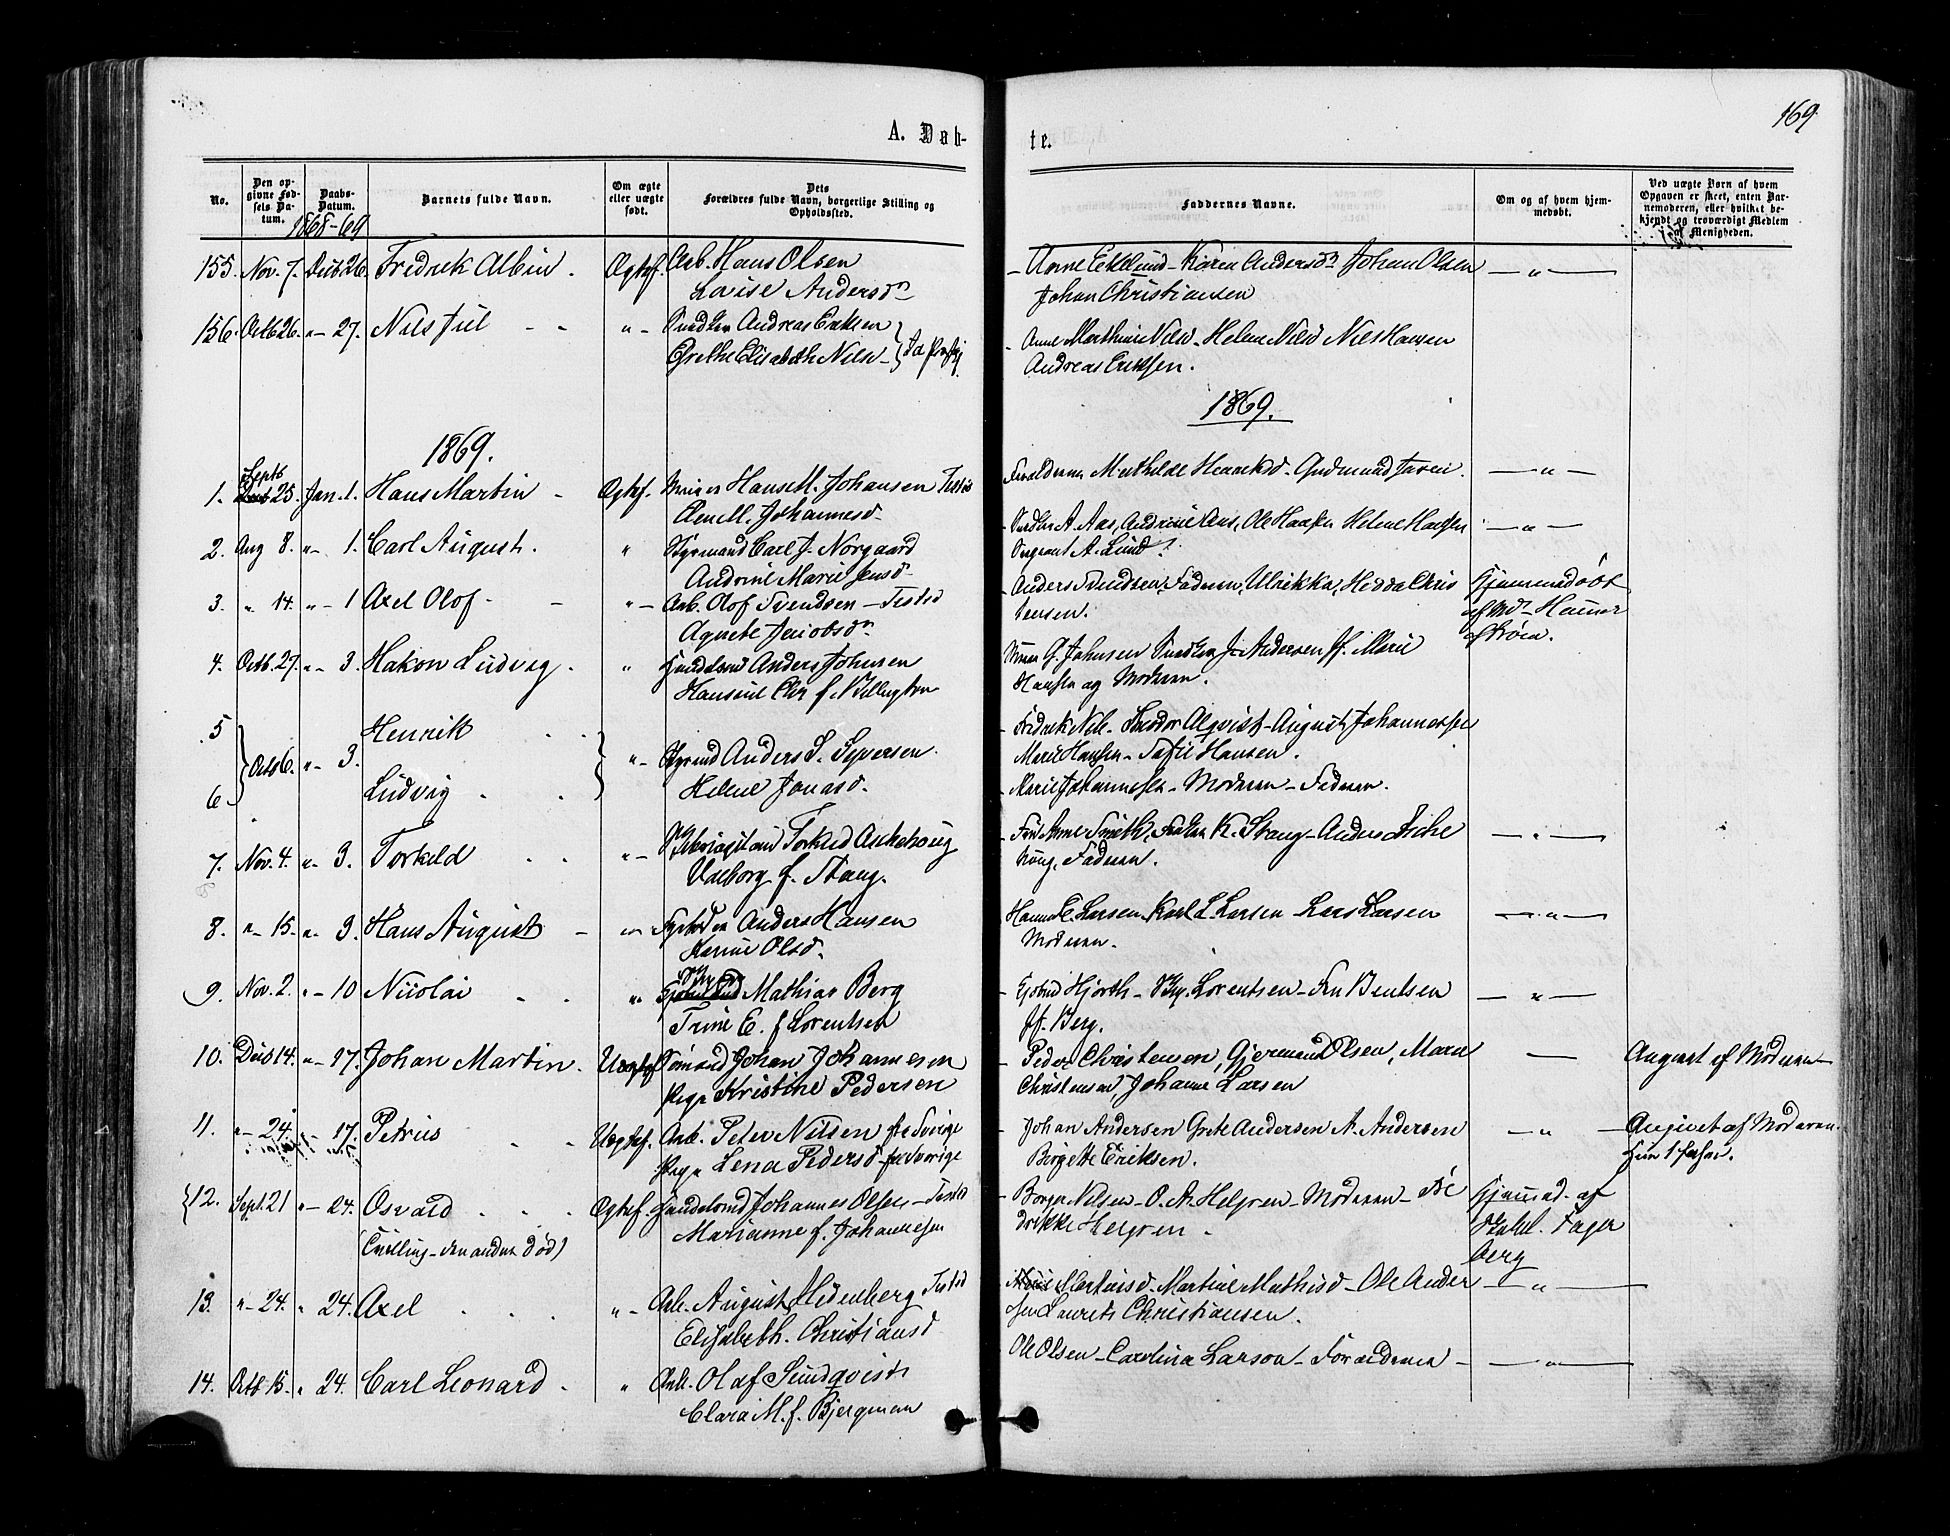 169
A. Døb-
te.
No.
Den op-
givne Fød-
sels Da-
tum.
Daabs-
Datum.
Barnets fulde Navn.
Om ægte
eller uægte
født.
Dets
Forældres fulde Navn, borgerlige Stilling og
Opholdssted.
Faddernes Navne.
Om og af hvem hjem-
medøbt.
Ved uægte Børn af hvem
Opgaven er skeet, enten Bar-
nemoderen, eller hvilket be-
kjendt og troværdigt Medlem
af Menigheden.
1868-69
155. Nov. 7. Decb 26. Fredrik Albin. Ægtef. Arb. Hans Olsen
Lovise Andersdn
Karen Andersdn Johan Olsen
Johan Christiansen
156. Octb 26. "- 27. Nils Juel "- Andreas Eriksen
Grethe Elisabeth Nilsd
Anne Marthine Nilsd- Helene Nilsd Nils Hansen
Andreas Eriksen.
1869.
1869.
1. Septb 25. Jan. 1. Hans Martin - Ægtef. Hans M. Johansen Tistd
M. Johannesd-
Forældrene Mathilde Henriksd- Gudmund
— " —
2. Aug 8. "- 1. Carl August. " Styrmand Carl J. Norgaard
Andrine Marie Jensd-
A. Aas, Andrine Aas, Ole Hansen Helene Hansen
Sergeant A. Lund.
— " —
3. " 14. "- 1 Axel Olof - "- Arb. Olof Svendsen - Tistd
Agnete Jacobsdn
Anders Svendsen, Faderen, Ulrikka, Hedda Chris
tensen.
Hjemmedøbt
af Md. Hammer
strøm.
4. Octb. 27. "- 3. Hakon Ludvig. " Anders Johnsen
Hansine Chr f.
G. Johnsen J. Andersen Jf. Marie
Hansen og Moderen.
5
6
Octb 6. "- 3.
Henrik
Ludvig
"- Styrmd Anders S. Syversen
Helene Jonasd.
Fredrik Nils- Theodor Alqvist- August Johannessen
Marie Hansen- Hansen.
Marie Johannesen- Moderen- Faderen.
7. Nov. 4. "- 3. Torkeld "- Torkild Askehoug
Valborg f. Stang.
Anne Smith, K. Stang- Anders Aske
houg, Faderen.
— " —
8. "- 15. "- 3. Hans August - Anders Hansen
Karine Olsd.
Hanna E. Larsen- Karl L. Larsen- Lars Larsen
Moderen.
— " —
9. Nov. 2. "- 10 Nicolai " Mathias Berg
Trine E. f Lorentsen
Hjorth- Lorentsen- Bentsen
Jf. Berg.
— " —
10. Decb 14. "- 17. Johan Martin. Uægtef Sømand Johan Johannesen
Pige Kristine Pedersen
Peder Christensen, Gjermund Olsen, Maren
Christensen, Johanne Larsen
—
Angivet af Moderen-
11. "- 24. "- 17. Petrus Uægtef. Arb. Peter Nilsen fra Sverige
Pige Lena Pedersd fra Sverige
Johan Andersen Grete Andersen A. Andersen
Birgette Eriksen.
— " —
Angivet af Moderen.
12. Sept. 21 "- 24. Osvald Ægtef. Handelsmd Johannes Olsen - Tistd
(Tvilling- den anden død)
Marianne f. Johannesen
Borger Nilsen- O. A. Helgren- Moderen- Fre
drikke Helgren -
Hjemmed- af
Fager
berg
13. "- 24. " 24. Axel "- Arb. August Tistd
Elisabeth. Christiansd
Martinsd- Martine Mathisd- Ole Ander
sen Laurets Christiansen.
— " —
14. Octb 15. " 24. Carl Leonard. " Arb. Olaf Sundqvist
Clara M. f. Bjergman
Ole Olsen- Carolina Larson- Forældrene-
— " —